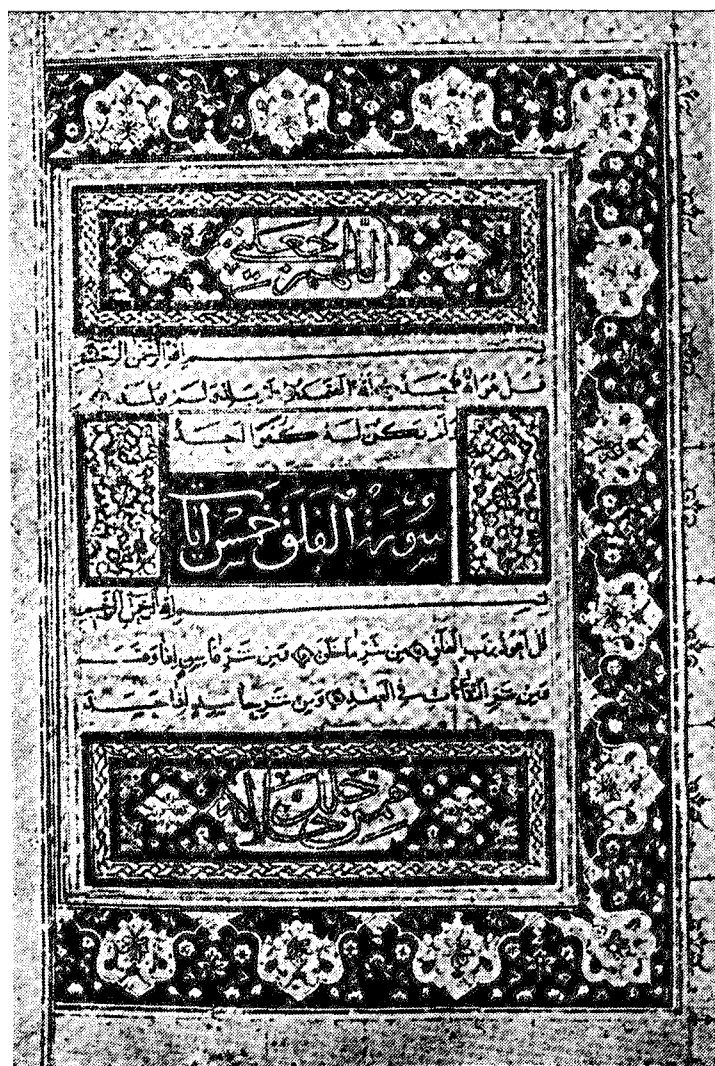 بسم الله الرحمن الرحيم
قل هو الله احد الله الصمد لم يلد ولم يولد
ولم يكن له كفوا احد
سورة الفلق خمس ايات
بسم الله الرحمن الرحيم
قل اعوذ برب الفلق من شر ما خلق ومن شر غاسق اذا وقب
ومن شر النفاثات في العقد ومن شر حاسد اذا حسد